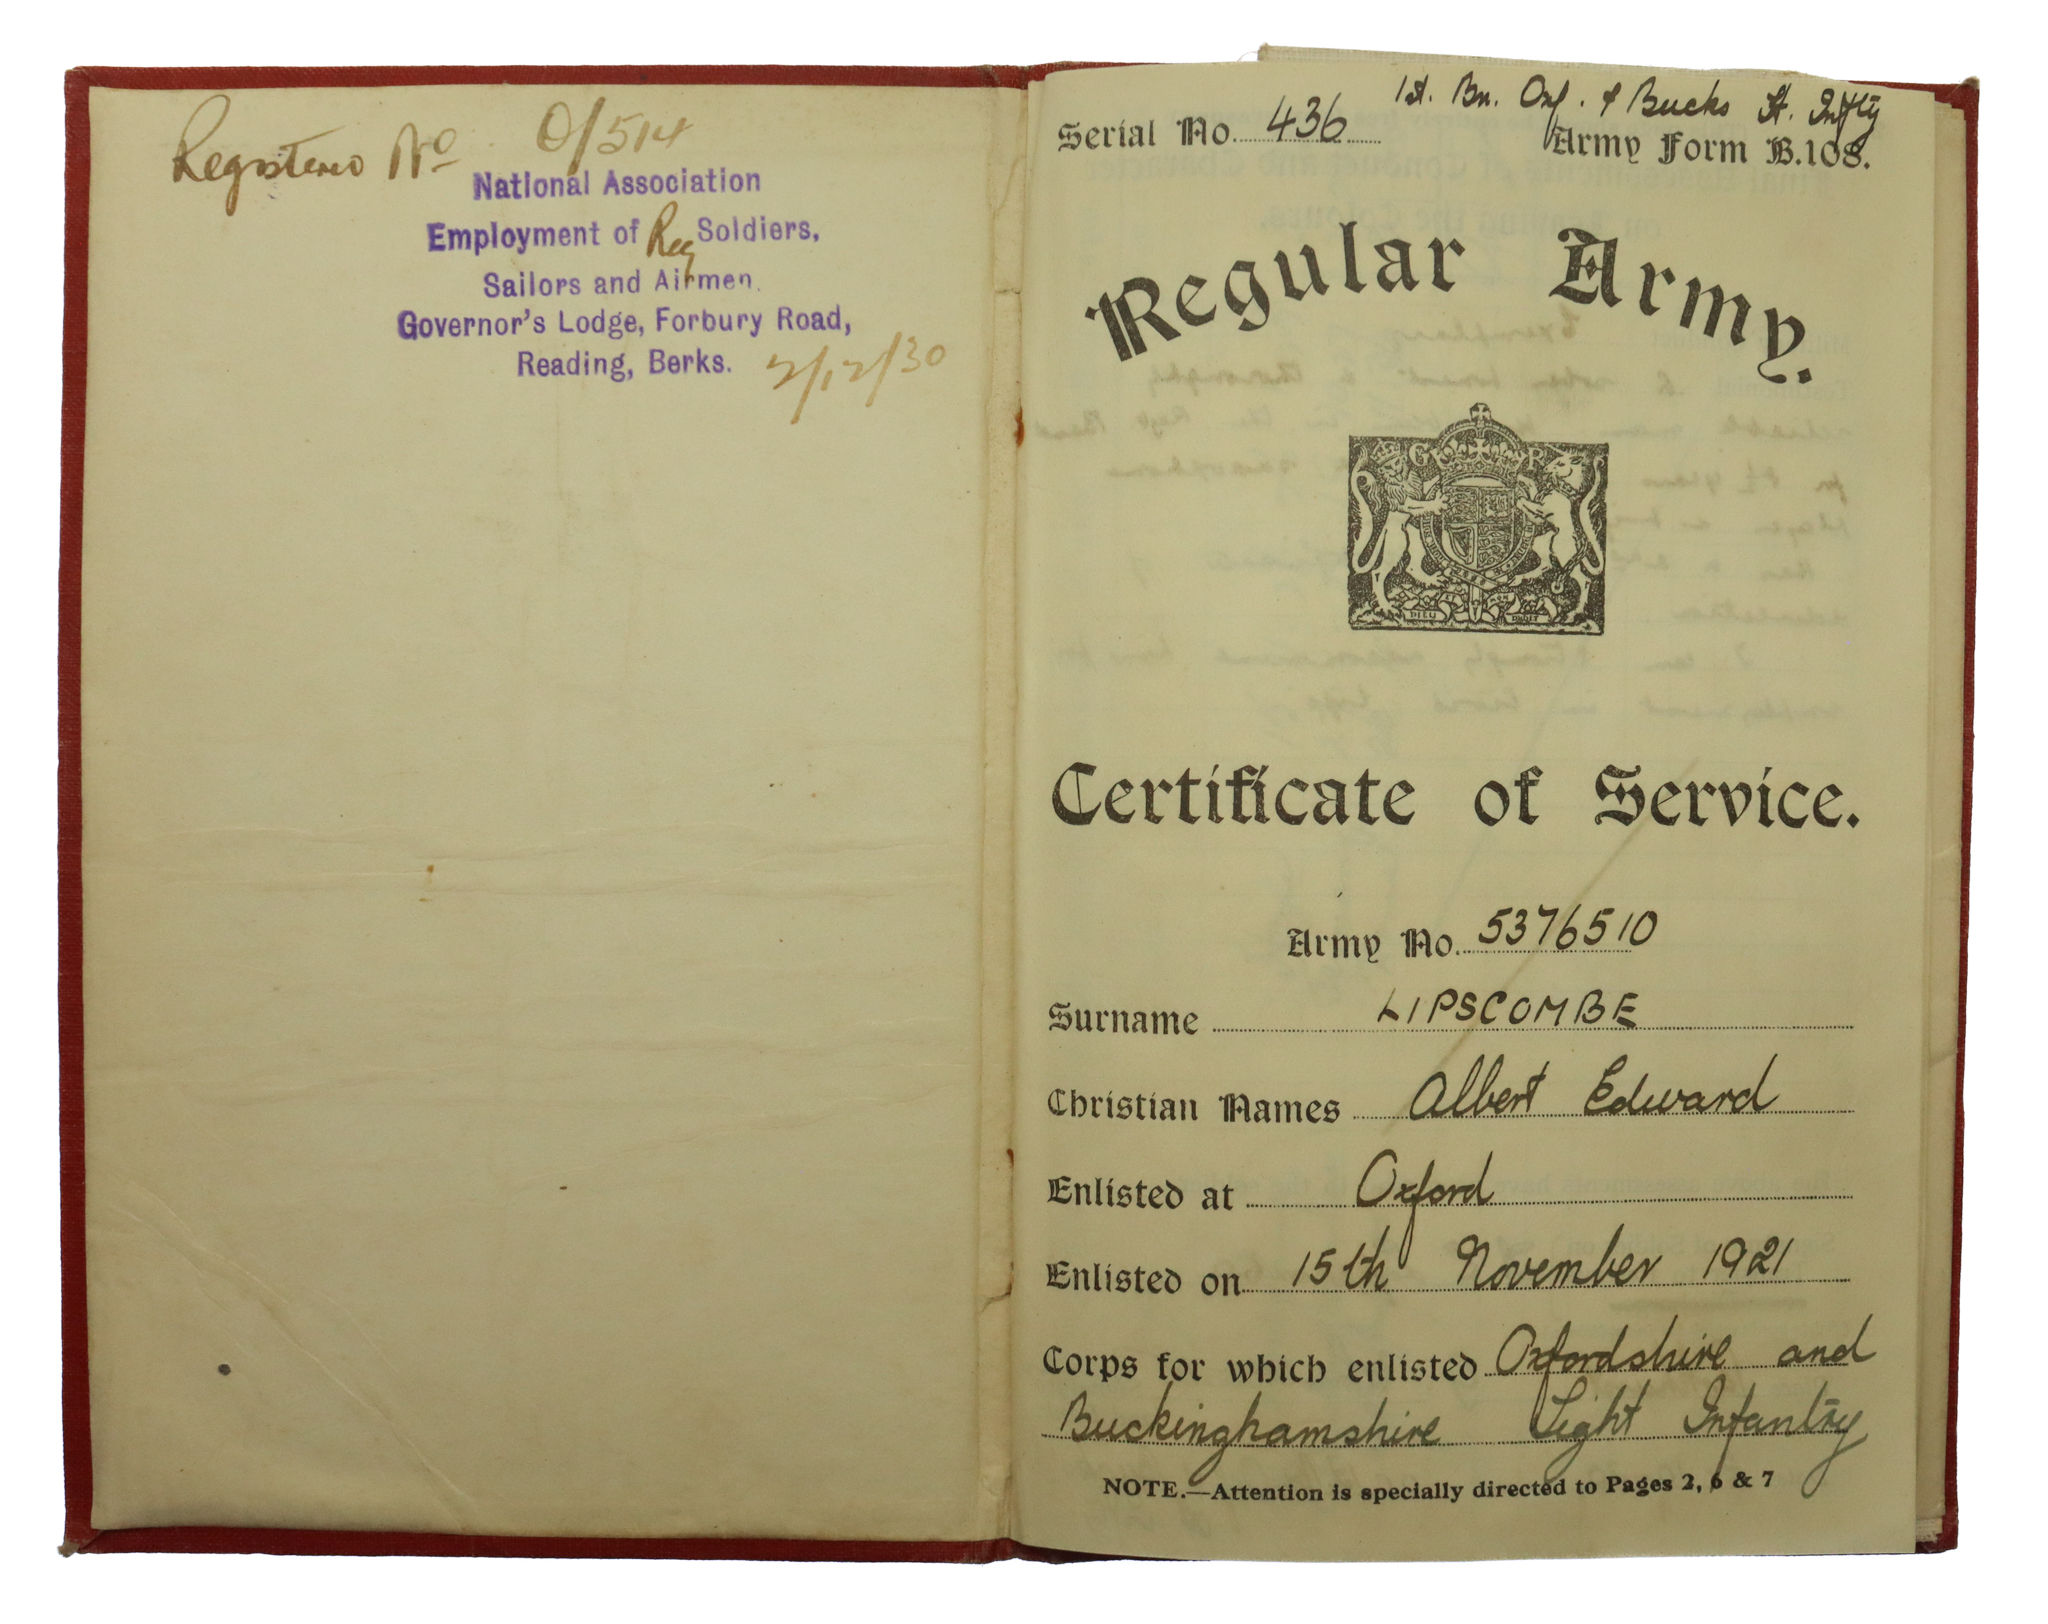 Registered No O/514
National Association
Employment of Reg Soldiers,
Sailors and Airmen.
Governor's Lodge, Forbury Road,
Reading, Berks. 2/12/30
1st. Bn. Oxf. & Bucks Lt. Inftý
Serial No. 436
Army Form B.108.
Regular Army.
G R
DIEU ET MON DROIT
Certificate of Service.
Army No. 5376510
Surname LIPSCOMBE
Christian Names Albert Edward
Enlisted at Oxford
Enlisted on 15th November 1921
Corps for which enlisted Oxfordshire and
Buckinghamshire Light Infantry
NOTE.—Attention is specially directed to Pages 2, 6 & 7